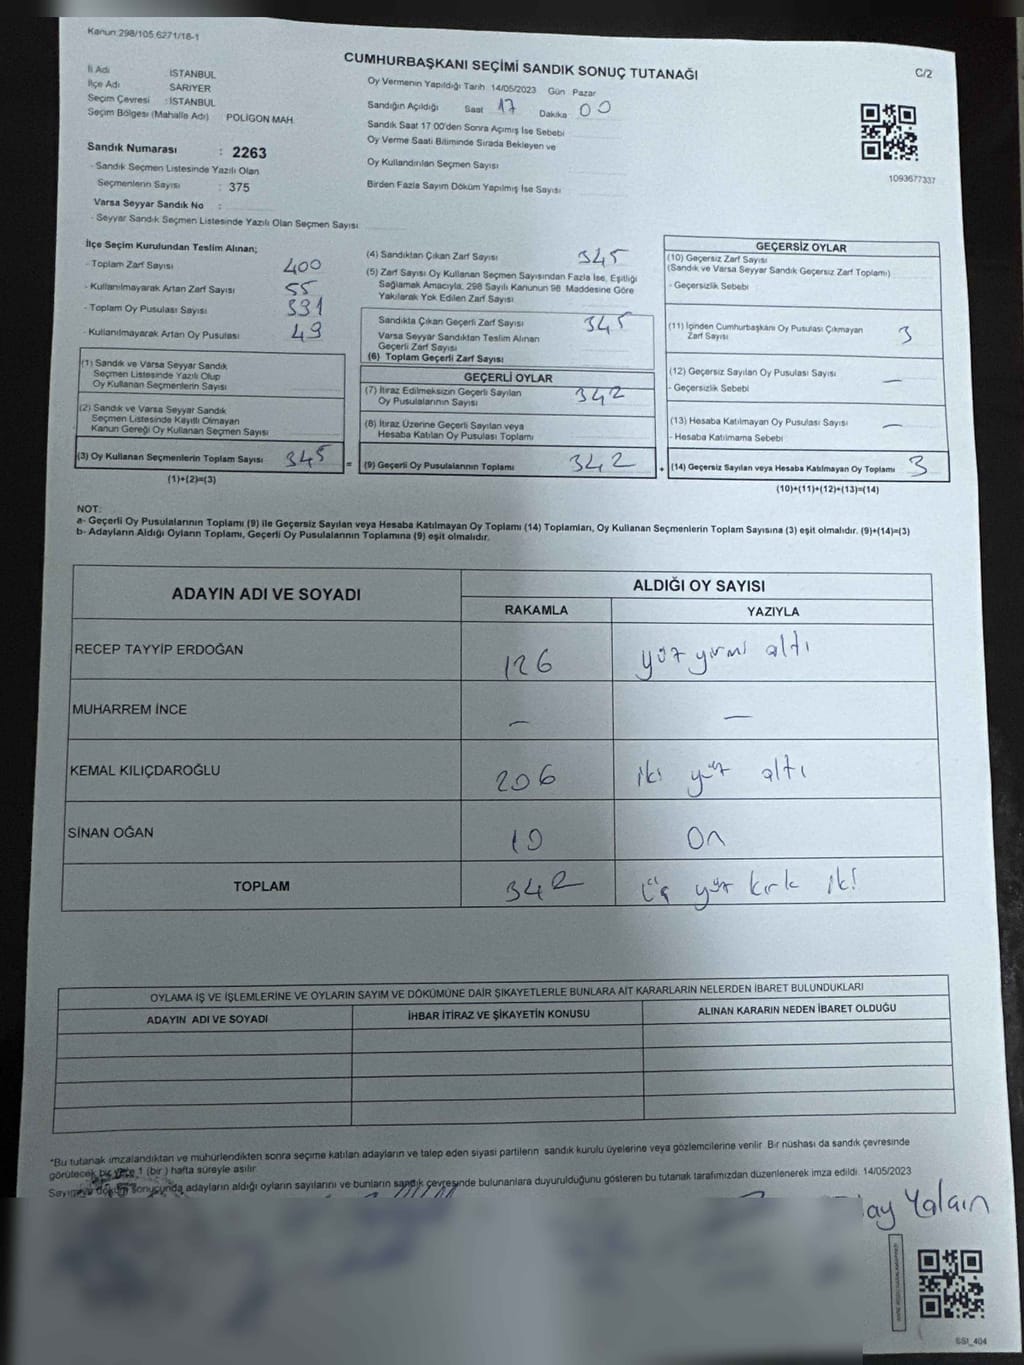 Kanun:298/105,6271/18-1
CUMHURBAŞKANI SEÇİMİ SANDIK SONUÇ TUTANAĞI
C/2
İl Adı İSTANBUL
İlçe Adı SARIYER
Seçim Çevresi : İSTANBUL
Seçim Bölgesi (Mahalle Adı) POLİGON MAH.
Oy Vermenin Yapıldığı Tarih 14/05/2023 Gün Pazar
Sandığın Açıldığı Saat 17 Dakika 00
Sandık Saat 17 00'den Sonra Açımış İse Sebebi
Oy Verme Saati Bitiminde Sırada Bekleyen ve
Oy Kullandırılan Seçmen Sayısı
Birden Fazla Sayım Döküm Yapılmış İse Sayısı
1093677337
Sandık Numarası : 2263
- Sandık Seçmen Listesinde Yazılı Olan
Seçmenlerin Sayısı : 375
Varsa Seyyar Sandık No :
- Seyyar Sandık Seçmen Listesinde Yazılı Olan Seçmen Sayısı
İlçe Seçim Kurulundan Teslim Alınan;
- Toplam Zarf Sayısı 400
- Kullanılmayarak Artan Zarf Sayısı 55
- Toplam Oy Pusulası Sayısı 391
- Kullanılmayarak Artan Oy Pusulası 49
(1) Sandık ve Varsa Seyyar Sandık
Seçmen Listesinde Yazılı Olup
Oy Kullanan Seçmenlerin Sayısı
(2) Sandık ve Varsa Seyyar Sandık
Seçmen Listesinde Kayıtlı Olmayan
Kanun Gereği Oy Kullanan Seçmen Sayısı
(3) Oy Kullanan Seçmenlerin Toplam Sayısı 345
(1)+(2)=(3)
=
(4) Sandıktan Çıkan Zarf Sayısı 345
(5) Zarf Sayısı Oy Kullanan Seçmen Sayısından Fazla İse, Eşitliği
Sağlamak Amacıyla, 298 Sayılı Kanunun 98 Maddesine Göre
Yakılarak Yok Edilen Zarf Sayısı
Sandıkta Çıkan Geçerli Zarf Sayısı 345
Varsa Seyyar Sandıktan Teslim Alınan
Geçerli Zarf Sayısı
(6) Toplam Geçerli Zarf Sayısı
GEÇERLİ OYLAR
(7) İtiraz Edilmeksizin Geçerli Sayılan
Oy Pusulalarının Sayısı 342
(8) İtiraz Üzerine Geçerli Sayılan veya
Hesaba Katılan Oy Pusulası Toplamı
(9) Geçerli Oy Pusulalarının Toplamı 342
+
GEÇERSİZ OYLAR
(10) Geçersiz Zarf Sayısı
(Sandık ve Varsa Seyyar Sandık Geçersiz Zarf Toplamı)
- Geçersizlik Sebebi
(11) İçinden Cumhurbaşkanı Oy Pusulası Çıkmayan
Zarf Sayısı 3
(12) Geçersiz Sayılan Oy Pusulası Sayısı —
- Geçersizlik Sebebi
(13) Hesaba Katılmayan Oy Pusulası Sayısı —
- Hesaba Katılmama Sebebi
(14) Geçersiz Sayılan veya Hesaba Katılmayan Oy Toplamı 3
(10)+(11)+(12)+(13)=(14)
NOT:
a- Geçerli Oy Pusulalarının Toplamı (9) ile Geçersiz Sayılan veya Hesaba Katılmayan Oy Toplamı (14) Toplamları, Oy Kullanan Seçmenlerin Toplam Sayısına (3) eşit olmalıdır. (9)+(14)=(3)
b- Adayların Aldığı Oyların Toplamı, Geçerli Oy Pusulalarının Toplamına (9) eşit olmalıdır.
ADAYIN ADI VE SOYADI
ALDIĞI OY SAYISI
RAKAMLA YAZIYLA
RECEP TAYYİP ERDOĞAN 126 yüz yirmi altı
MUHARREM İNCE — —
KEMAL KILIÇDAROĞLU 206 iki yüz altı
SİNAN OĞAN 10 On
TOPLAM 342 Üç yüz kırk iki
OYLAMA İŞ VE İŞLEMLERİNE VE OYLARIN SAYIM VE DÖKÜMÜNE DAİR ŞİKAYETLERLE BUNLARA AİT KARARLARIN NELERDEN İBARET BULUNDUKLARI
ADAYIN ADI VE SOYADI İHBAR İTİRAZ VE ŞİKAYETİN KONUSU ALINAN KARARIN NEDEN İBARET OLDUĞU
*Bu tutanak imzalandıktan ve mühürlendikten sonra seçime katılan adayların ve talep eden siyasi partilerin sandık kurulu üyelerine veya gözlemcilerine verilir. Bir nüshası da sandık çevresinde
görülecek bir yere 1 (bir) hafta süreyle asılır
Sayım ve döküm sonucunda adayların aldığı oyların sayılarını ve bunların sandık çevresinde bulunanlara duyurulduğunu gösteren bu tutanak tarafımızdan düzenlenerek imza edildi. 14/05/2023
ay Yalçın
SSI_404